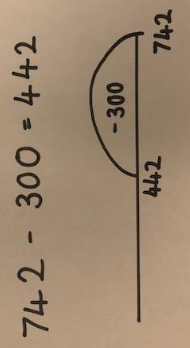 742 - 300 = 442
-300
442
742